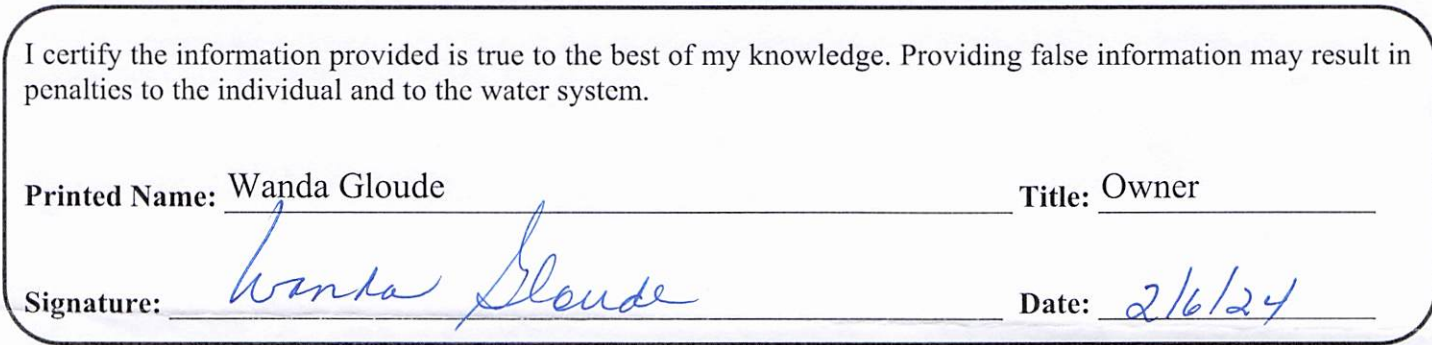 I certify the information provided is true to the best of my knowledge. Providing false information may result in
penalties to the individual and to the water system.
Printed Name: Wanda Gloude Title: Owner
Signature: Wanda Gloude Date: 2/6/24